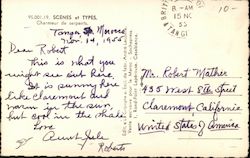 SCÈNES et TYPES.
Charmeur de serpents.
Tangier, Morocco
Nov. 14, 1955
Dear Robert
This is what you
might see out here.
It is sunny here
like Claremont and
warm in the sun,
but cool in the shade.
Love
Aunt Jule
Roberts
Mr. Robert Mather
455 West 6th Street
Claremont California
United States of America
8 - AM
15 NO
55